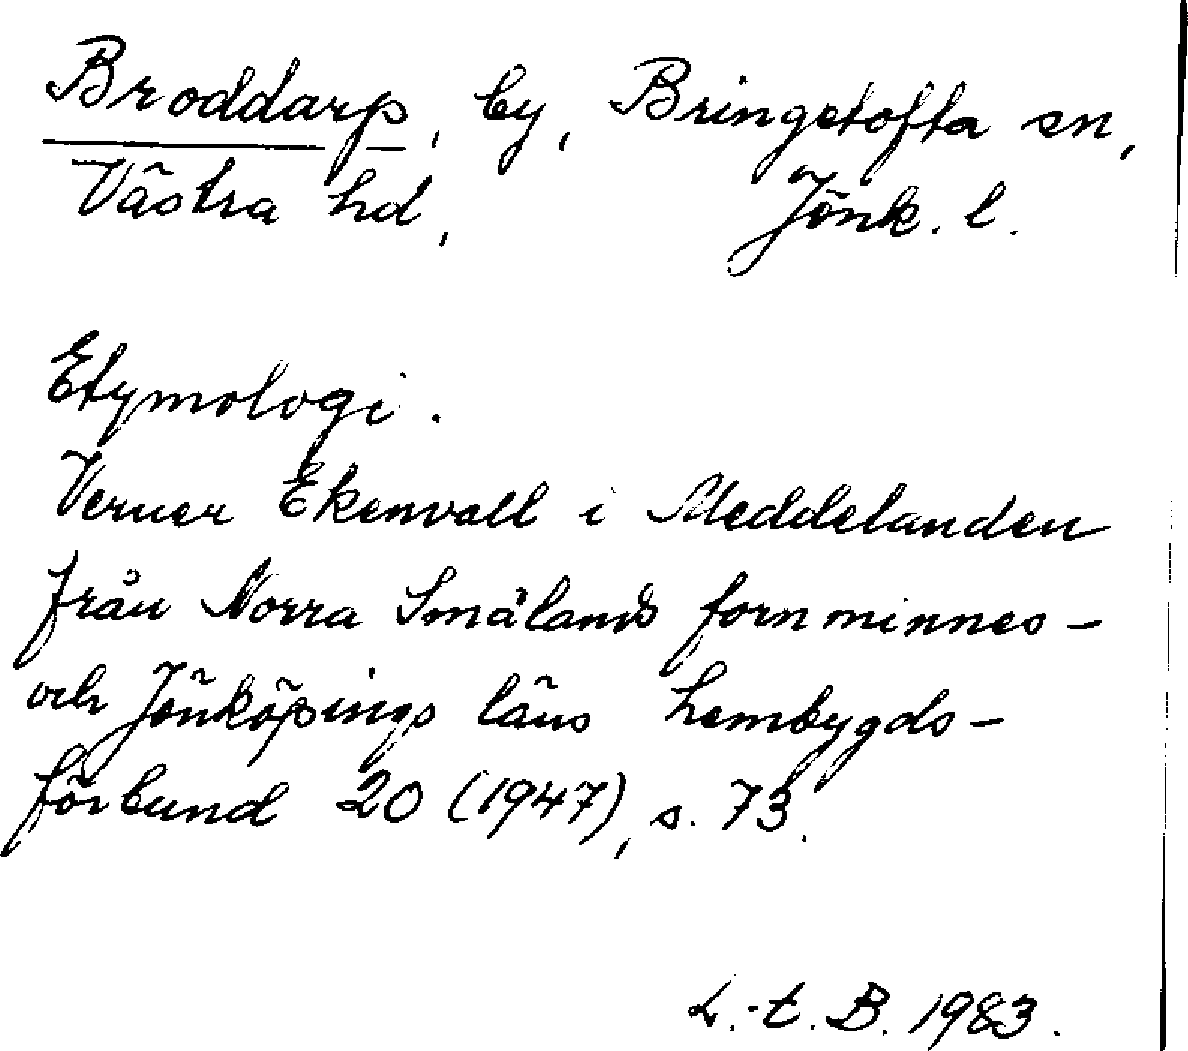 Broddarp, by, Bringetofta sn,
Västra hd, Jönk. l.
Etymologi.
Verner Ekenvall i Meddelanden
från Norra Smålands fornminnes-
och Jönköpings läns hembygds-
förbund 20 (1947), s. 73.
L.-t. B. 1983.